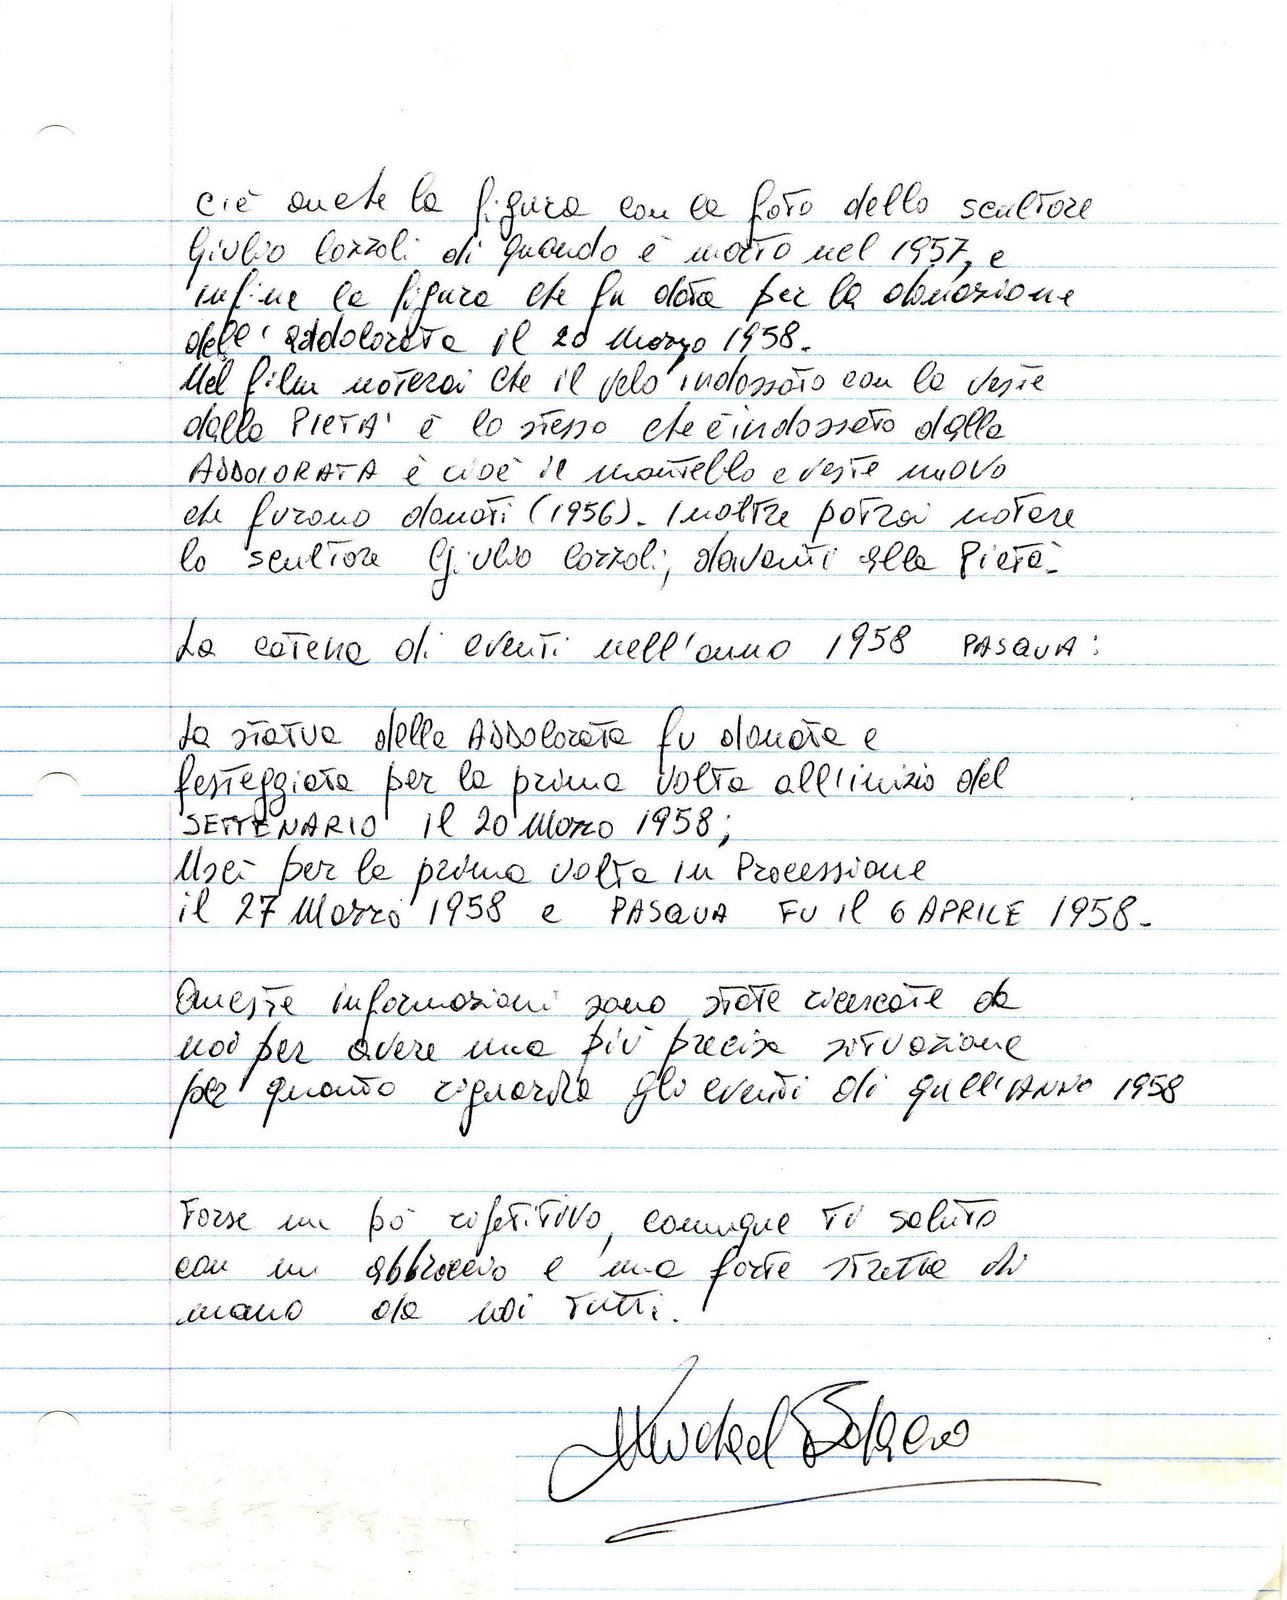 c'è anche la figura con la foto dello scultore
Giulio Cozzoli di quando è morto nel 1957, e
infine la figura che fu data per la donazione
dell'addolorata il 20 Marzo 1958.
Nel film noterai che il velo indossato con la veste
dalla PIETA' è lo stesso che è indossato dalla
ADDOLORATA è cioè il mantello e veste nuovo
che furono donati (1956). Inoltre potrai notare
lo scultore Giulio Cozzoli, davanti alla Pietà.
La catena di eventi nell'anno 1958 PASQUA:
La statua della ADDolorata fu donata e
festeggiata per la prima volta all'inizio del
SETTENARIO il 20 Marzo 1958;
Uscì per la prima volta in Processione
il 27 Marzo 1958 e PASQUA FU il 6 APRILE 1958.
Queste informazioni sono state ricercate da
noi per avere una più precisa situazione
per quanto riguarda gli eventi di quell'ANNO 1958
Forse un pò ripetitivo, comunque ti saluto
con un abbraccio e una forte stretta di
mano da noi tutti.